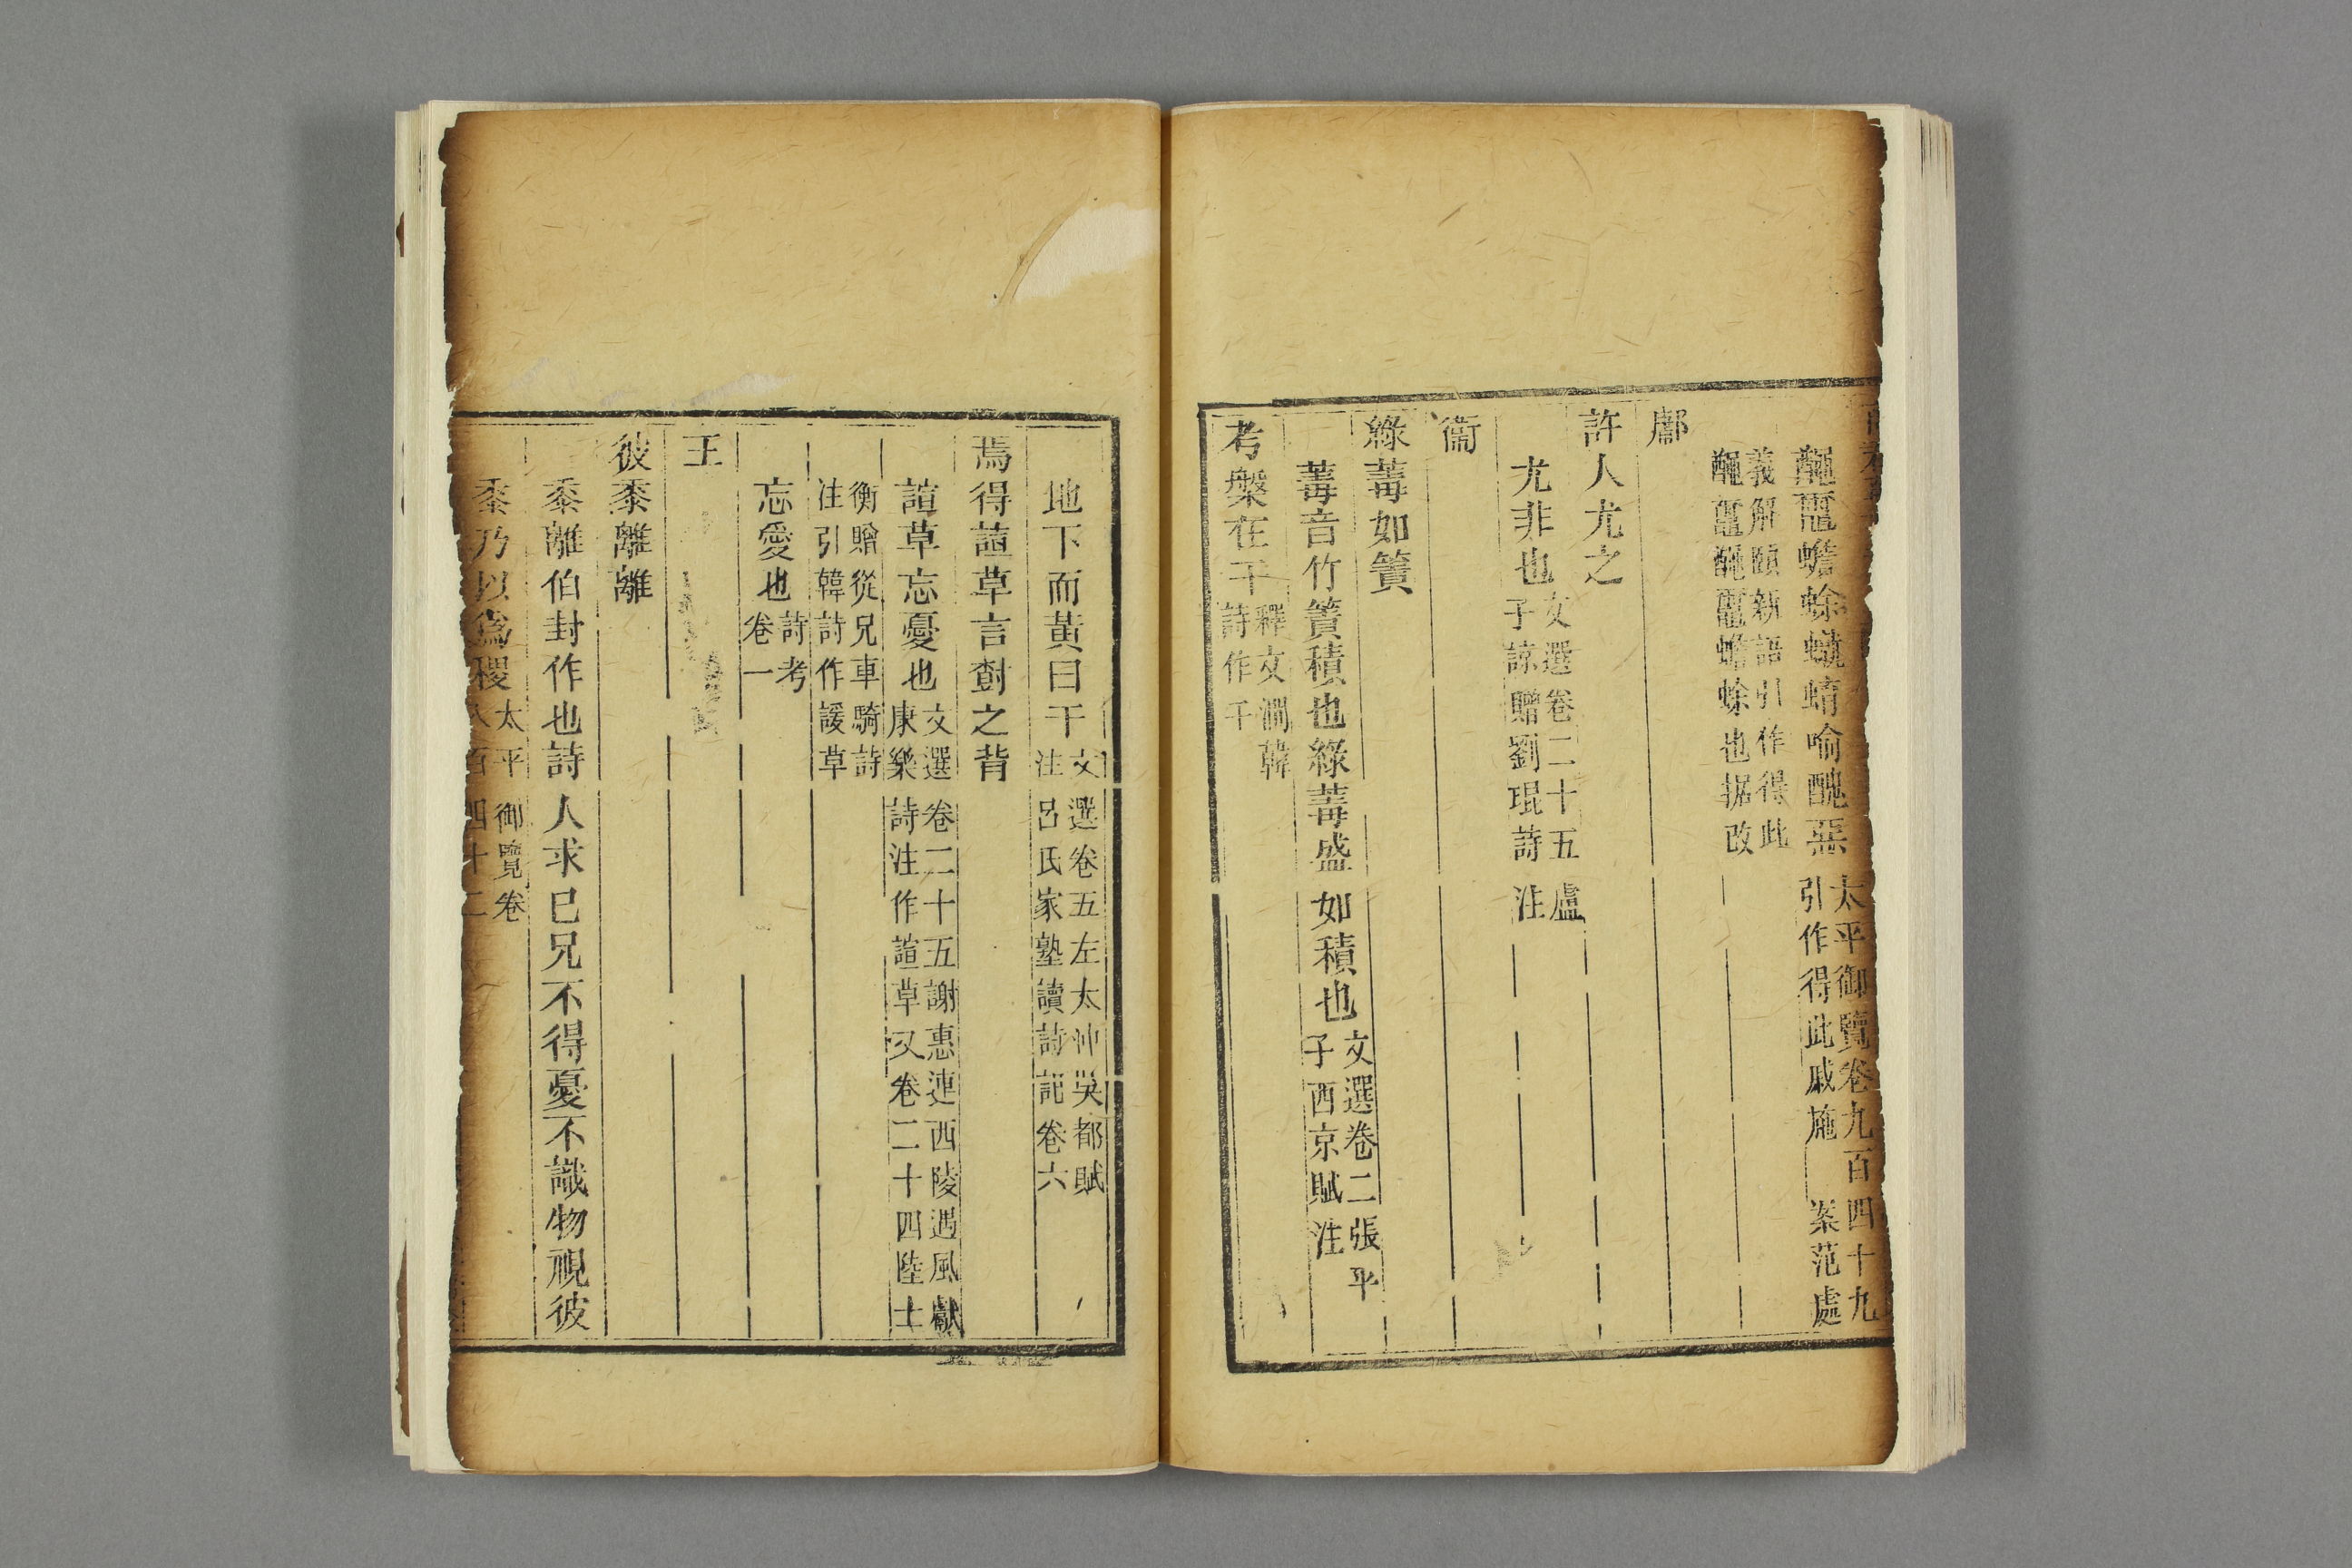 𪓰𪓿蟾蜍蟯蝫喻醜惡太平御覽卷九百四十九
引作得此戚施　案范處
義解頤新語引作得此
𪓰𪓿𪓰𪓿蟾蜍也据改
鄘
許人尤之
尤非也文選卷二十五盧
子諒贈劉琨詩注
衞
綠䔰如簀
䔰音竹簀積也綠䔰盛如積也文選卷二張平
子西京賦注
考槃在干釋文澗韓
詩作干
地下而黃曰干文選卷五左太冲吳都賦
注呂氏家塾讀詩記卷六
焉得諠草言樹之背
諠草忘憂也文選卷二十五謝惠連西陵遇風獻
康樂詩注作諠草又卷二十四陸士
衡贈從兄車騎詩
注引韓詩作諼草
忘愛也詩考
卷一
王
彼黍離離
黍離伯封作也詩人求已兄不得憂不識物視彼
黍乃以爲稷太平御覽卷
百四十二